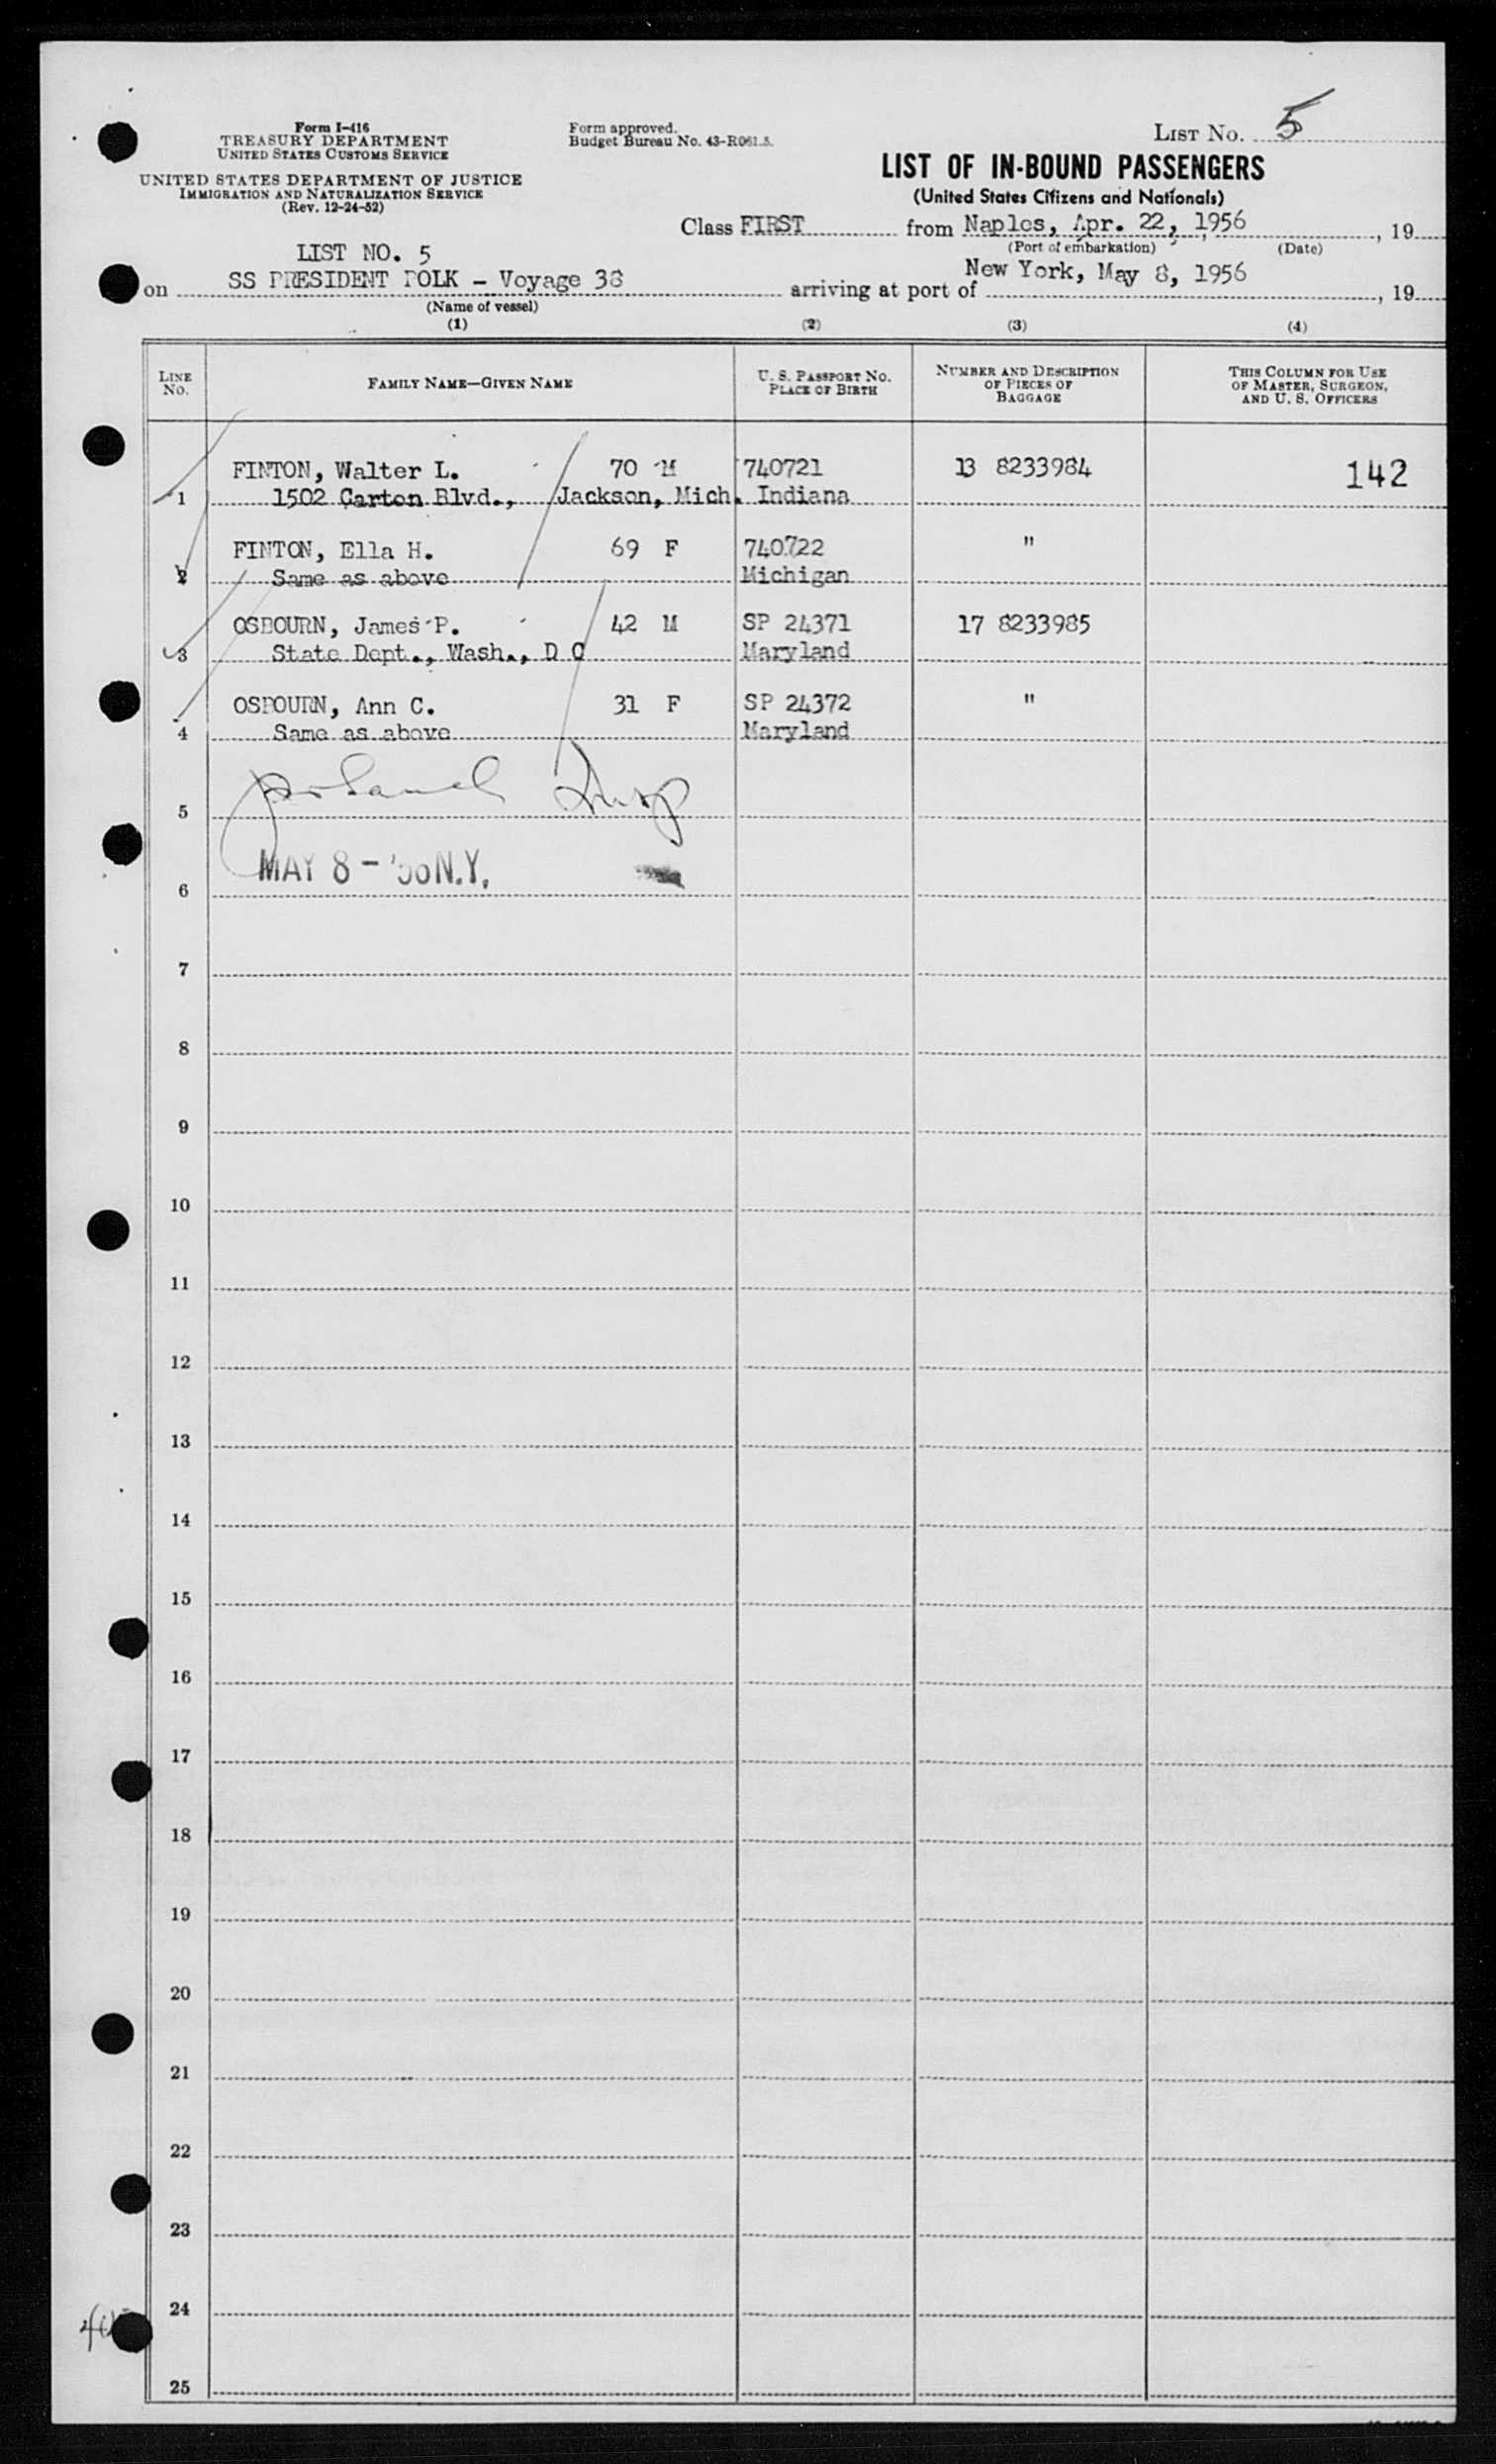 Form I-416
TREASURY DEPARTMENT
UNITED STATES CUSTOMS SERVICE
UNITED STATES DEPARTMENT OF JUSTICE
IMMIGRATION AND NATURALIZATION SERVICE
(Rev. 12-24-52)
Form approved.
Budget Bureau No. 43-R061.5.
LIST No. 5
LIST OF IN-BOUND PASSENGERS
(United States Citizens and Nationals)
Class FIRST from Naples, Apr. 22, 1956, 19
(Port of embarkation) (Date)
LIST NO. 5
on SS PRESIDENT POLK - Voyage 38 arriving at port of New York, May 8, 1956, 19
(Name of vessel)
(1) (2) (3) (4)
LINE No. FAMILY NAME—GIVEN NAME U. S. PASSPORT NO. PLACE OF BIRTH NUMBER AND DESCRIPTION OF PIECES OF BAGGAGE THIS COLUMN FOR USE OF MASTER, SURGEON, AND U. S. OFFICERS
FINTON, Walter L. 70 M 740721 13 8233984 142
1 1502 Carton Blvd., Jackson, Mich. Indiana
FINTON, Ella H. 69 F 740722 "
2 Same as above Michigan
OSBOURN, James P. 42 M SP 24371 17 8233985
3 State Dept., Wash., D C Maryland
OSBOURN, Ann C. 31 F SP 24372 "
4 Same as above Maryland
5
MAY 8 - '56 N.Y.
6
7
8
9
10
11
12
13
14
15
16
17
18
19
20
21
22
23
24
25